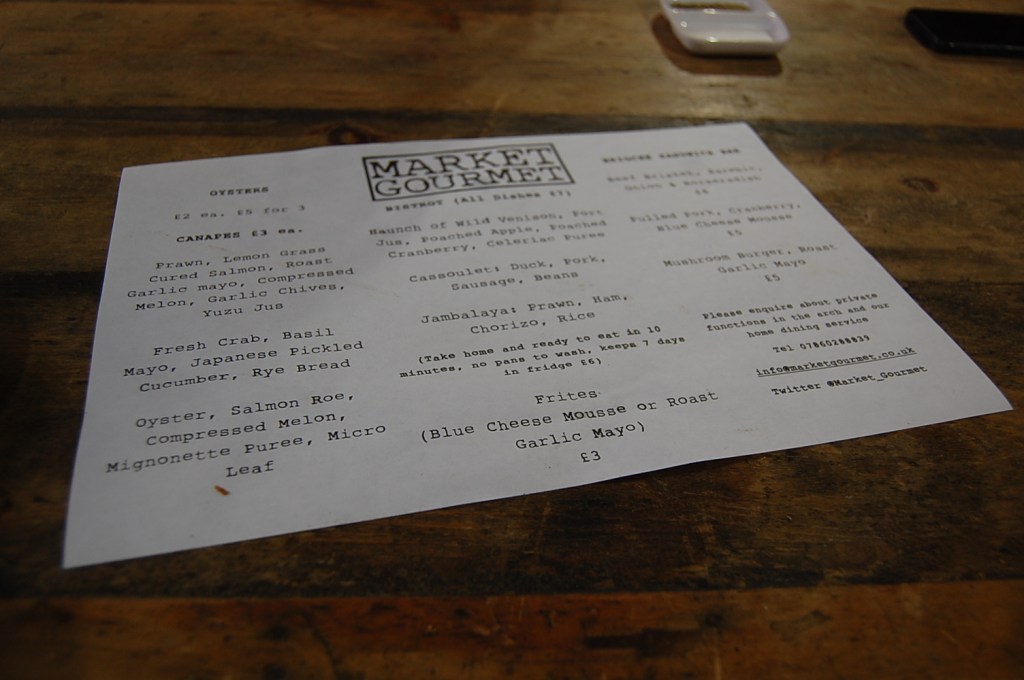 OYSTERS
£2 ea. £5 for 3
CANAPES £3 ea.
Prawn, Lemon Grass
Cured Salmon, Roast
Garlic mayo, Compressed
Melon, Garlic Chives,
Yuzu Jus
Fresh Crab, Basil
Mayo, Japanese Pickled
Cucumber, Rye Bread
Oyster, Salmon Roe,
Compressed Melon,
Mignonette Puree, Micro
Leaf
MARKET
GOURMET
BISTROT (All Dishes £7)
Haunch of Wild Venison, Port
Jus, Poached Apple, Poached
Cranberry, Celeriac Puree
Cassoulet: Duck, Pork,
Sausage, Beans
Jambalaya: Prawn, Ham,
Chorizo, Rice
(Take home and ready to eat in 10
minutes, no pans to wash, keeps 7 days
in fridge £6)
Frites
(Blue Cheese Mousse or Roast
Garlic Mayo)
£3
BRIOCHE SANDWICH BAR
Beef Brisket,
Onion & Horseradish
Pulled Pork, Cranberry,
Blue Cheese Mousse
£5
Mushroom Burger, Roast
Garlic Mayo
£5
Please enquire about private
functions in the arch and our
home dining service
Tel 07860288839
info@marketgourmet.co.uk
Twitter @Market_Gourmet